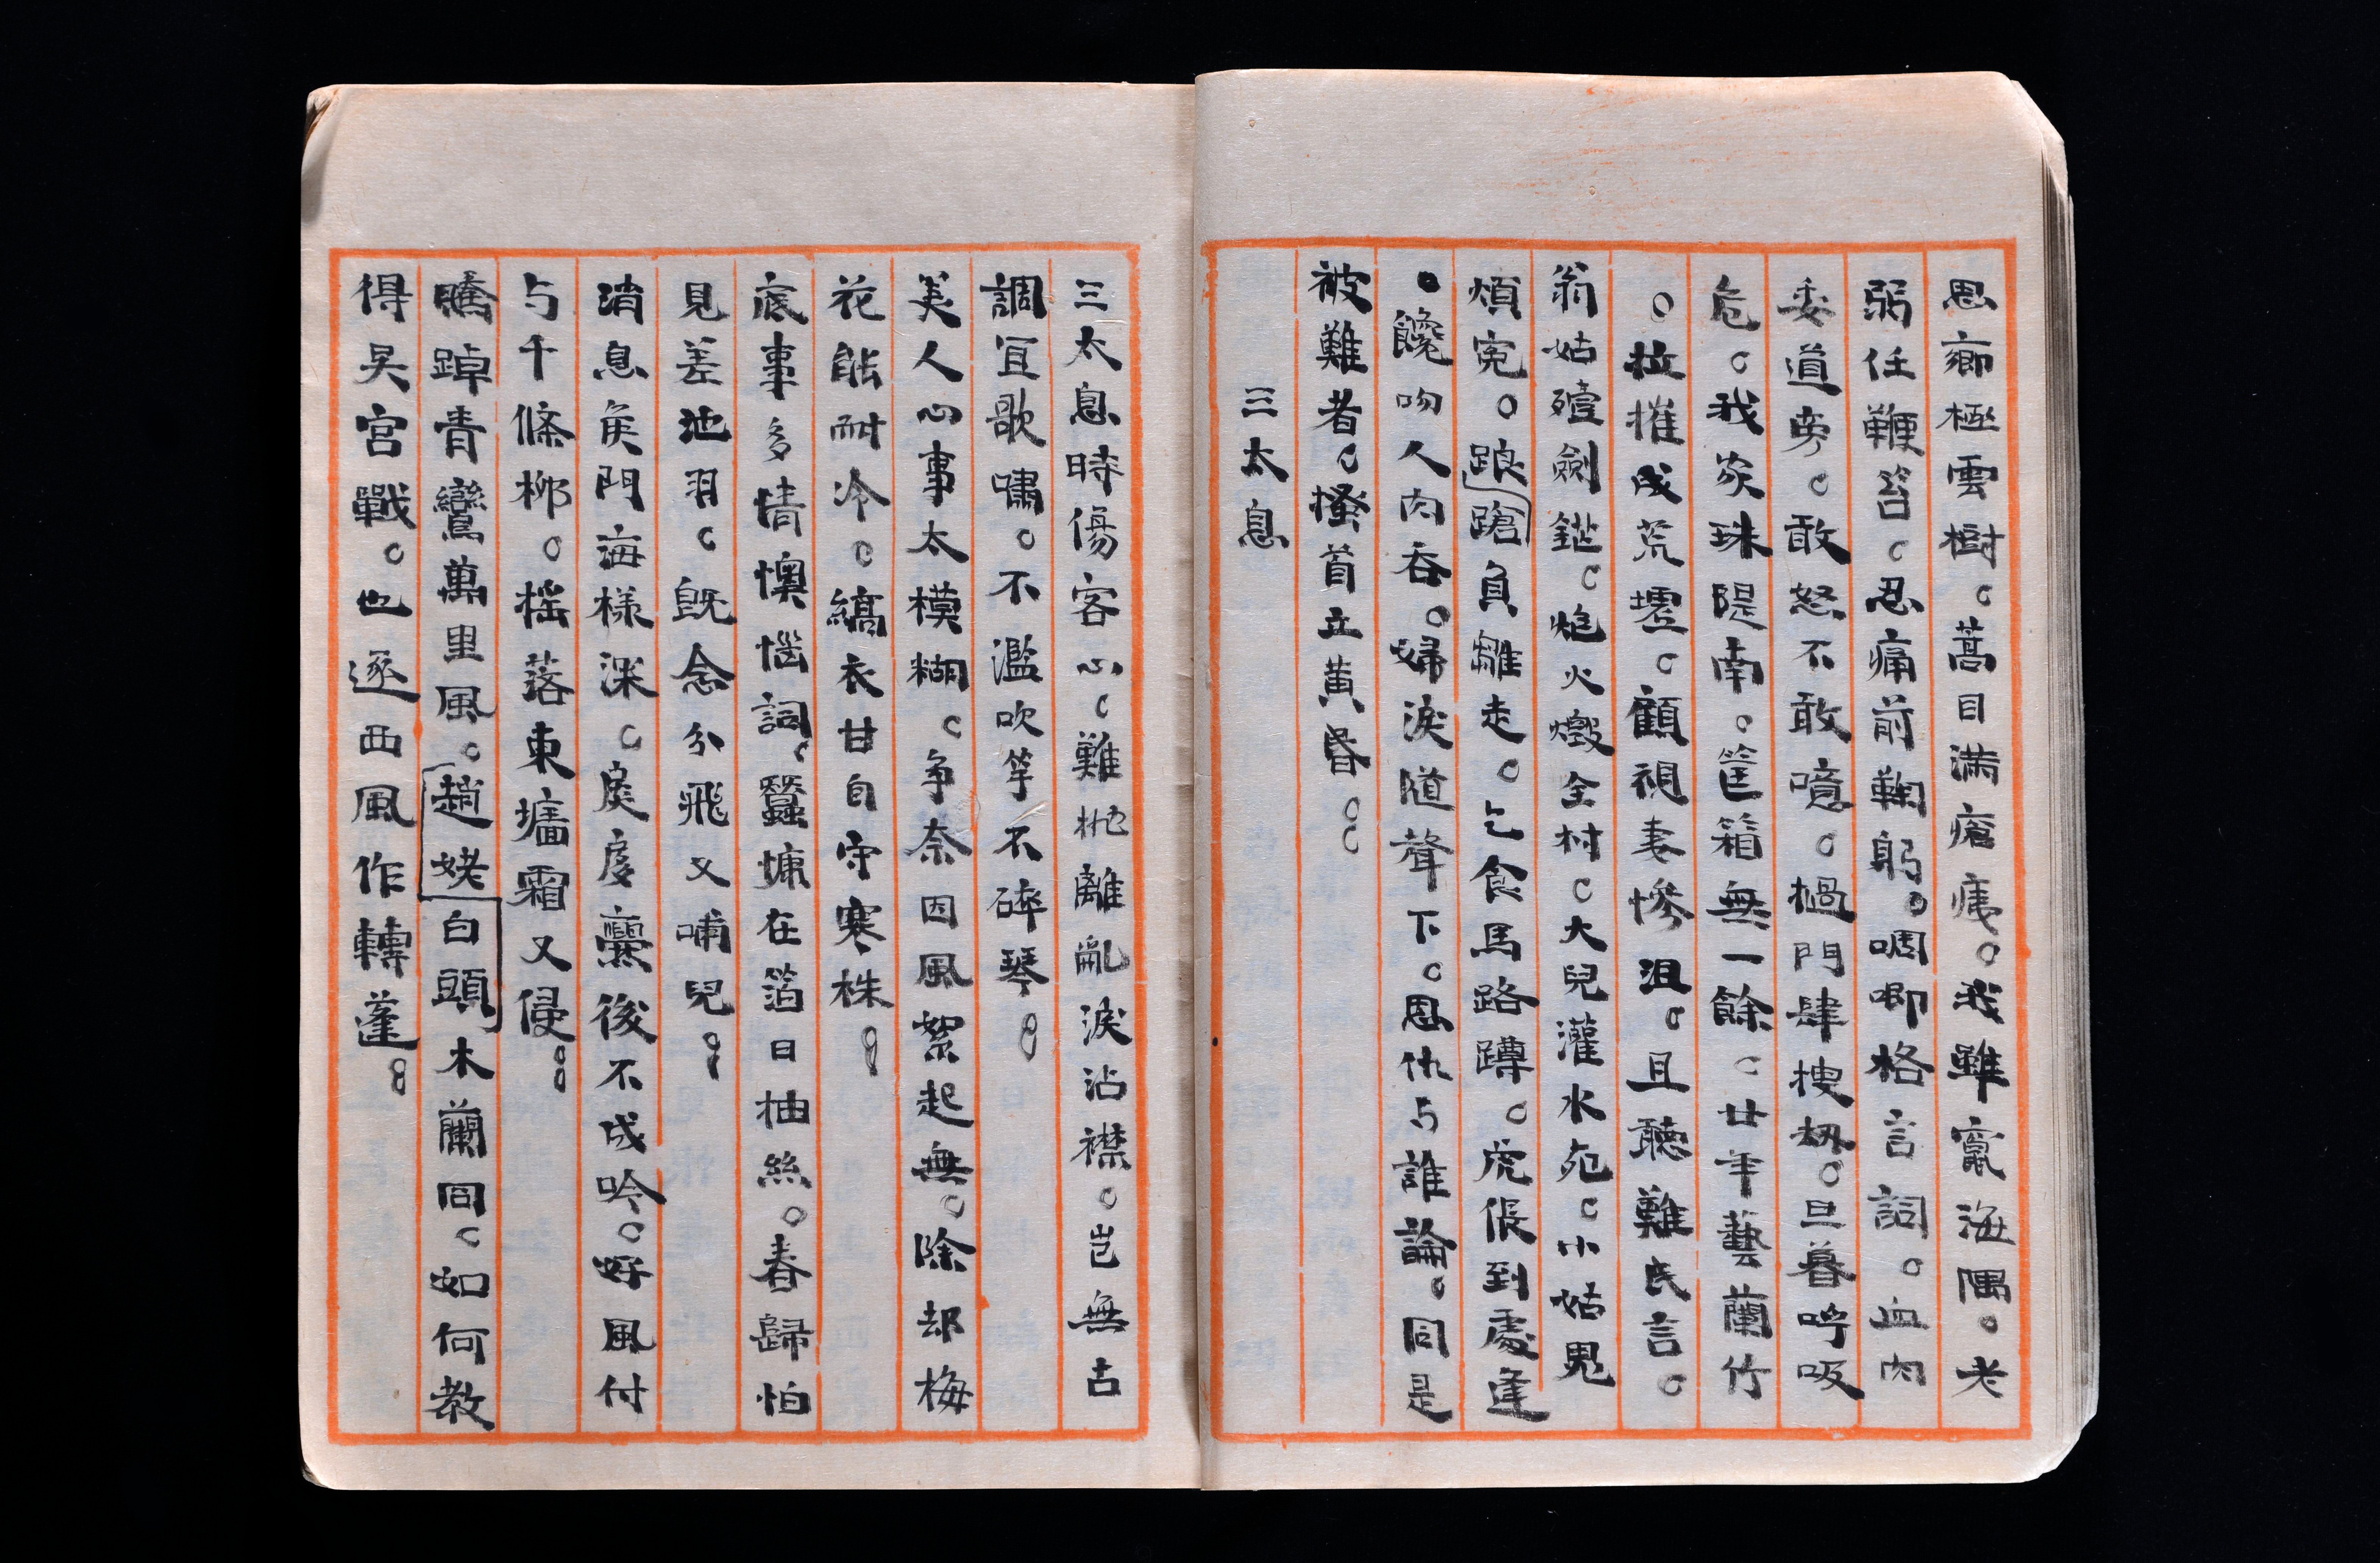 思鄉極雲樹。蒿目滿瘡痍。我雖竄海隅。老
弱任鞭笞。忍痛前鞠躬。啁唧格言詞。血肉
委道旁。敢怒不敢噫。撾門肆搜　。旦暮呼吸
危。我家珠隄南。筐箱無一餘。廿年藝蘭竹
。拉摧成荒墟。顧視妻慘沮。且聽難民言。
翁姑殪劍鋩。炮火燬全村。大兒灌水死。小姑鬼
煩冤。踉蹌負雛走。乞食馬路蹲。虎倀到處逢
。饞吻人肉吞。婦淚隨聲下。恩仇与誰論。同是
被難者。搔首立黃昏。。
三太息
三太息時傷客心。難拋離亂淚沾襟。豈無古
調宜歌嘯。不濫吹竽不碎琴。。
美人心事太模糊。爭奈因風絮起無。除却梅
花能耐冷。縞衣甘自守寒株。。
底事多情懊惱詞。蠶慵在箔日抽絲。春歸怕
見差池羽。既念分飛又哺兒。。
消息矦門海樣深。扊扅爨後不成吟。好風付
与千條栁。搖落東墻霜又侵。。
騰踔青鸞萬里風。趙姥白頭木蘭同。如何教
得吳宮戰。也逐西風作轉蓬。。